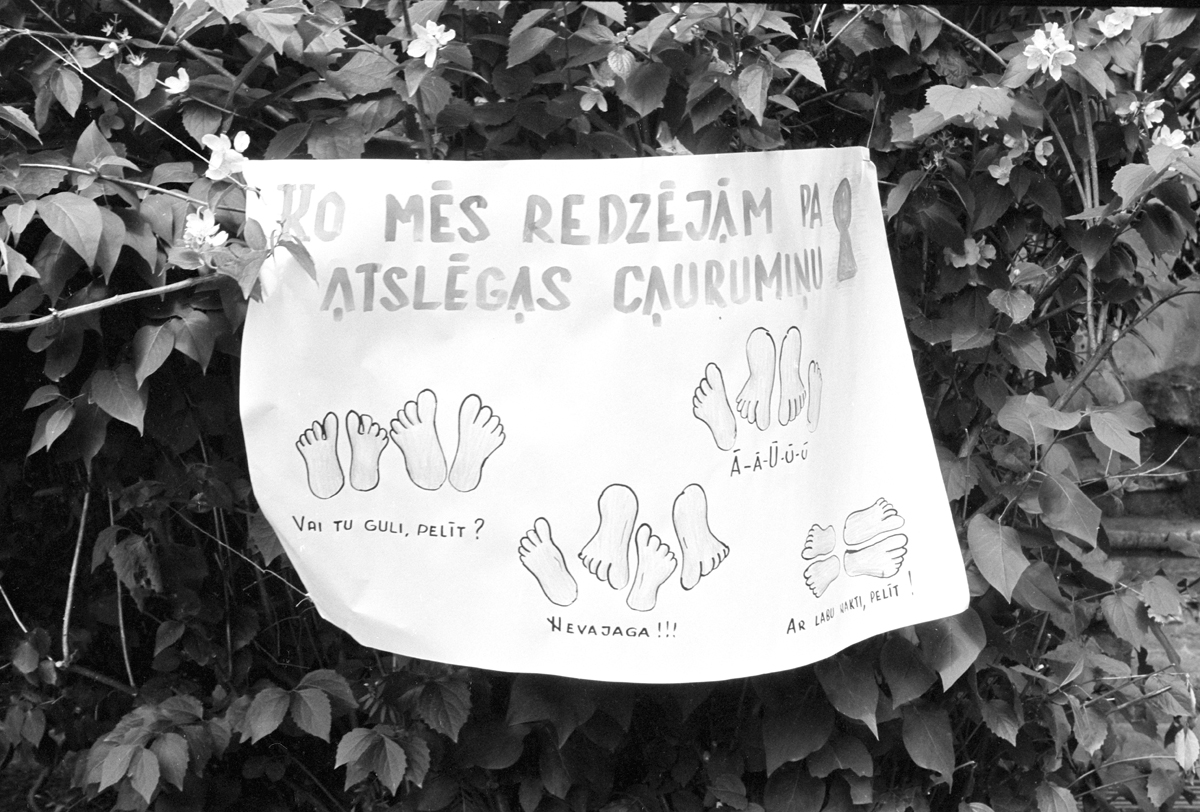 KO MĒS REDZĒJĄM PA
ĄTSLĒGĄS CĄURUMIŅU
VAI TU GULI, PELĪT?
Ā-Ā-Ū-Ū-Ū
NEVAJAGA!!!
AR LABU NAKTI, PELĪT!